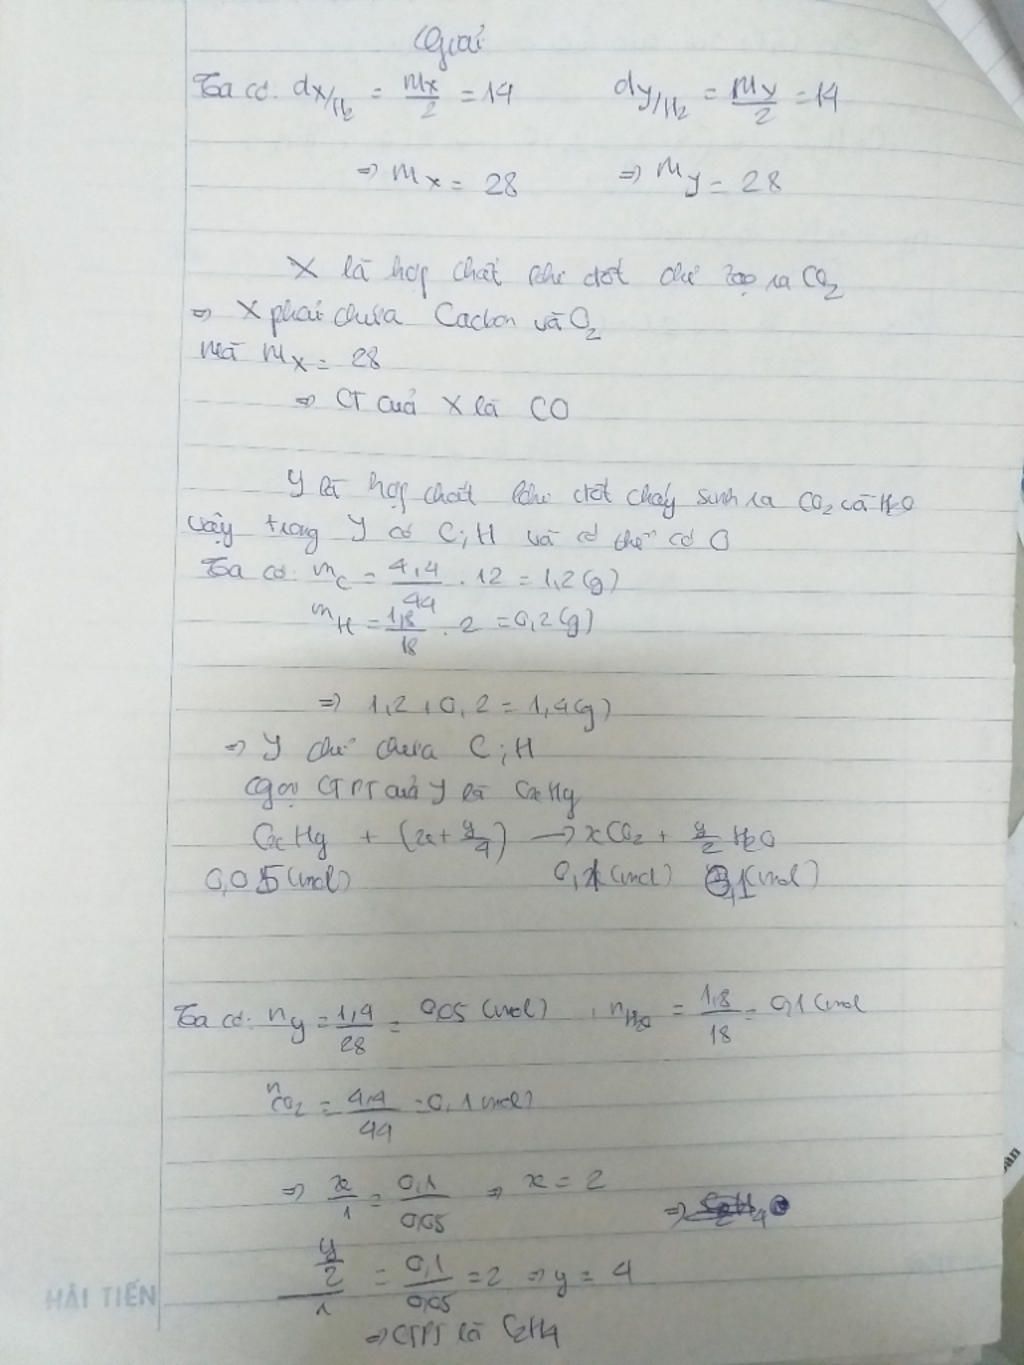 Giải
Ta có: dX/H2 = MX/2 = 14 dY/H2 = MY/2 = 14
=> MX = 28 => MY = 28
X là hợp chất khi đốt chỉ tạo ra CO2
=> X phải chứa Cacbon và O2
mà MX = 28
=> CT cuả X là CO
Y là hợp chất khi đốt cháy sinh ra CO2 và H2O
vậy trong Y có C; H và có thể có O
Ta có: mC = 4,4/44 . 12 = 1,2 (g)
mH = 1,8/18 . 2 = 0,2 (g)
=> 1,2 + 0,2 = 1,4 (g)
=> Y chỉ chứa C; H
Gọi CTPT cuả Y là CxHy
CxHy + (x + y/4) → xCO2 + y/2 H2O
0,05 (mol) 0,1 (mol) 0,1 (mol)
Ta có: nY = 1,4/28 = 0,05 (mol) , nH2O = 1,8/18 = 0,1 (mol
nCO2 = 4,4/44 = 0,1 mol)
=> x/1 = 0,1/0,05 => x = 2
y/2/1 = 0,1/0,05 = 2 => y = 4
=> CTPT là C2H4
HẢI TIẾN